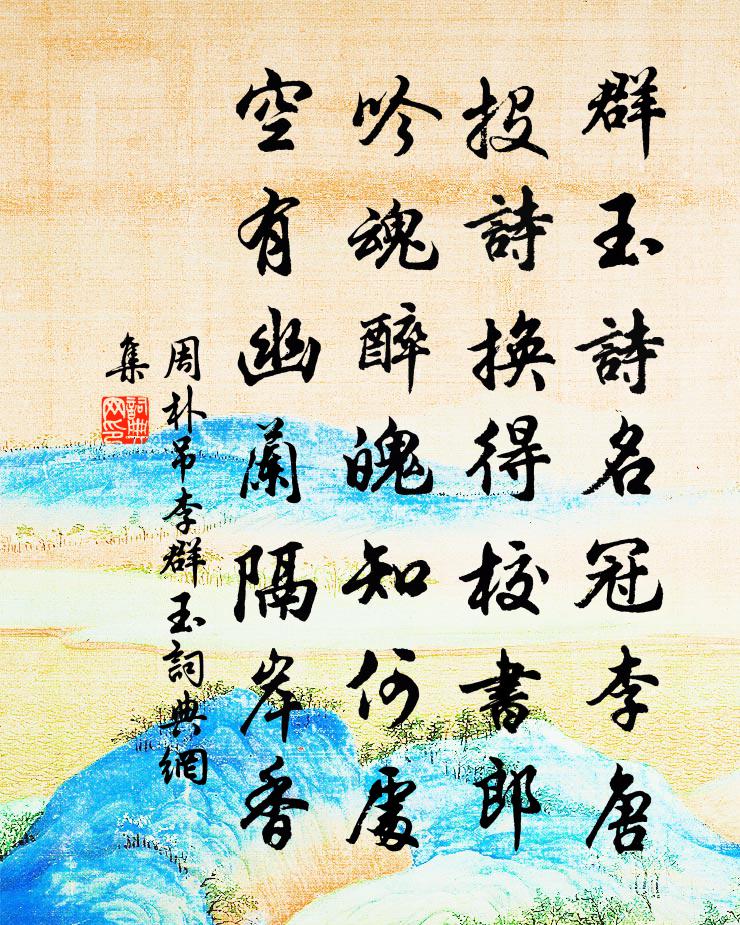 群玉詩名冠李唐
投詩換得校書郎
吟魂醉魄知何處
空有幽蘭隔岸香
周朴吊李群玉詞典網
集
詞典
网印